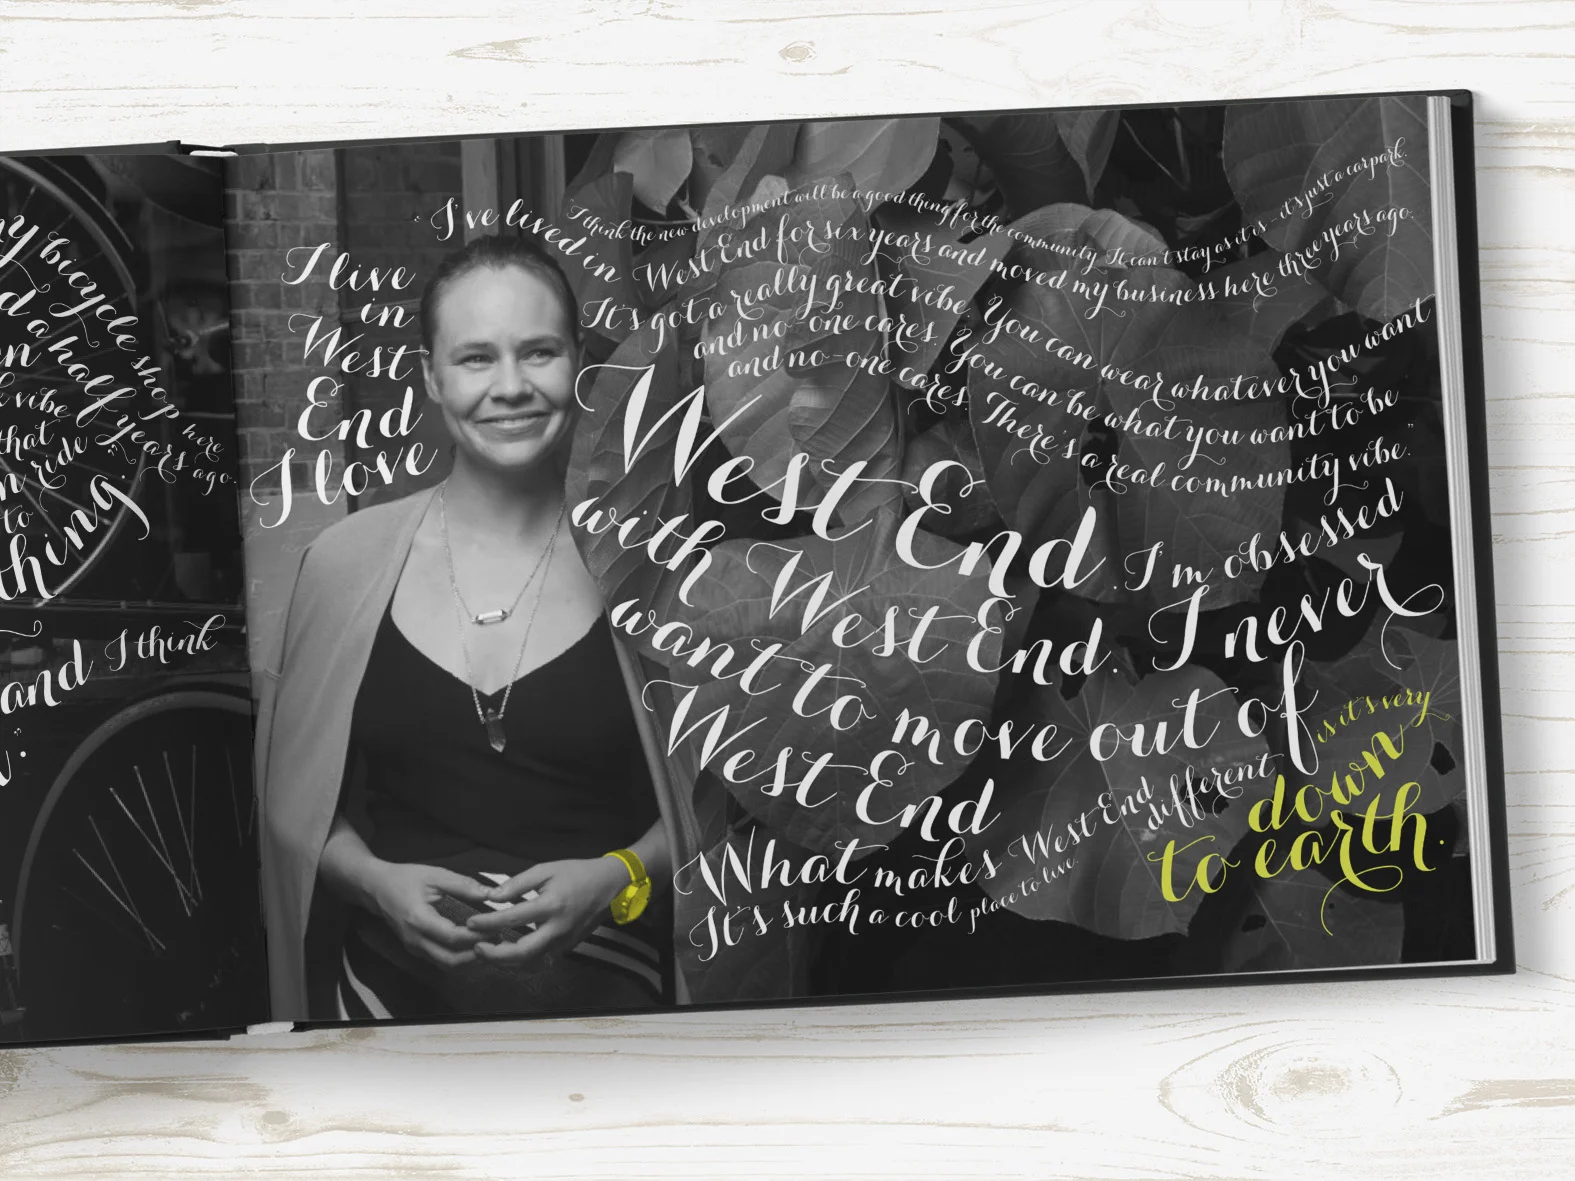 my bicycle shop here
a half years ago.
vibe
that
ride
to
thing.
and I think
I live
in
West
End
I love
"I've lived in West End for six years and moved my business here three years ago.
"I think the new development will be a good thing for the community. It can't stay as it is - it's just a carpark.
It's got a really great vibe. You can wear whatever you want
and no-one cares. You can be what you want to be
and no-one cares. There's a real community vibe."
West End. I'm obsessed
with West End. I never
want to move out of
West End
What makes West End different is it's very
down
to earth.
It's such a cool place to live.